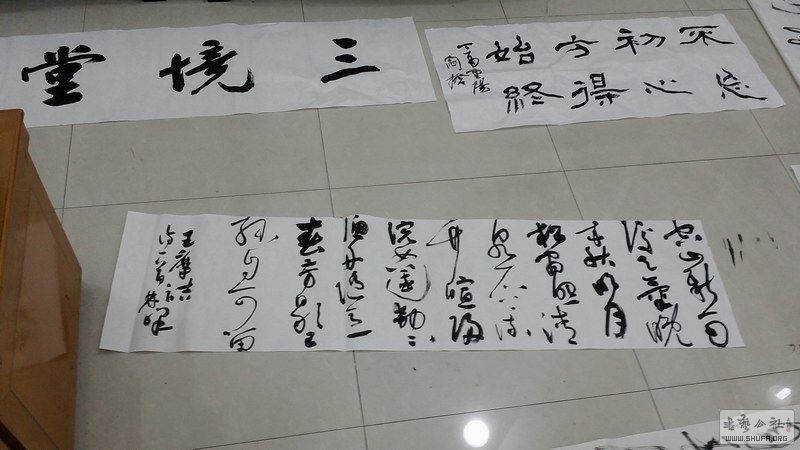 三境堂
不忘
初心
方得
始終
丁酉重陽
空山新雨
後天氣晚
來秋明月
松間照清
泉石上流
竹喧歸
浣女蓮動下
漁舟隨意
春芳歇王
孫自可留
王摩詰
诗一首
书艺公社
WWW.SHUFA.ORG